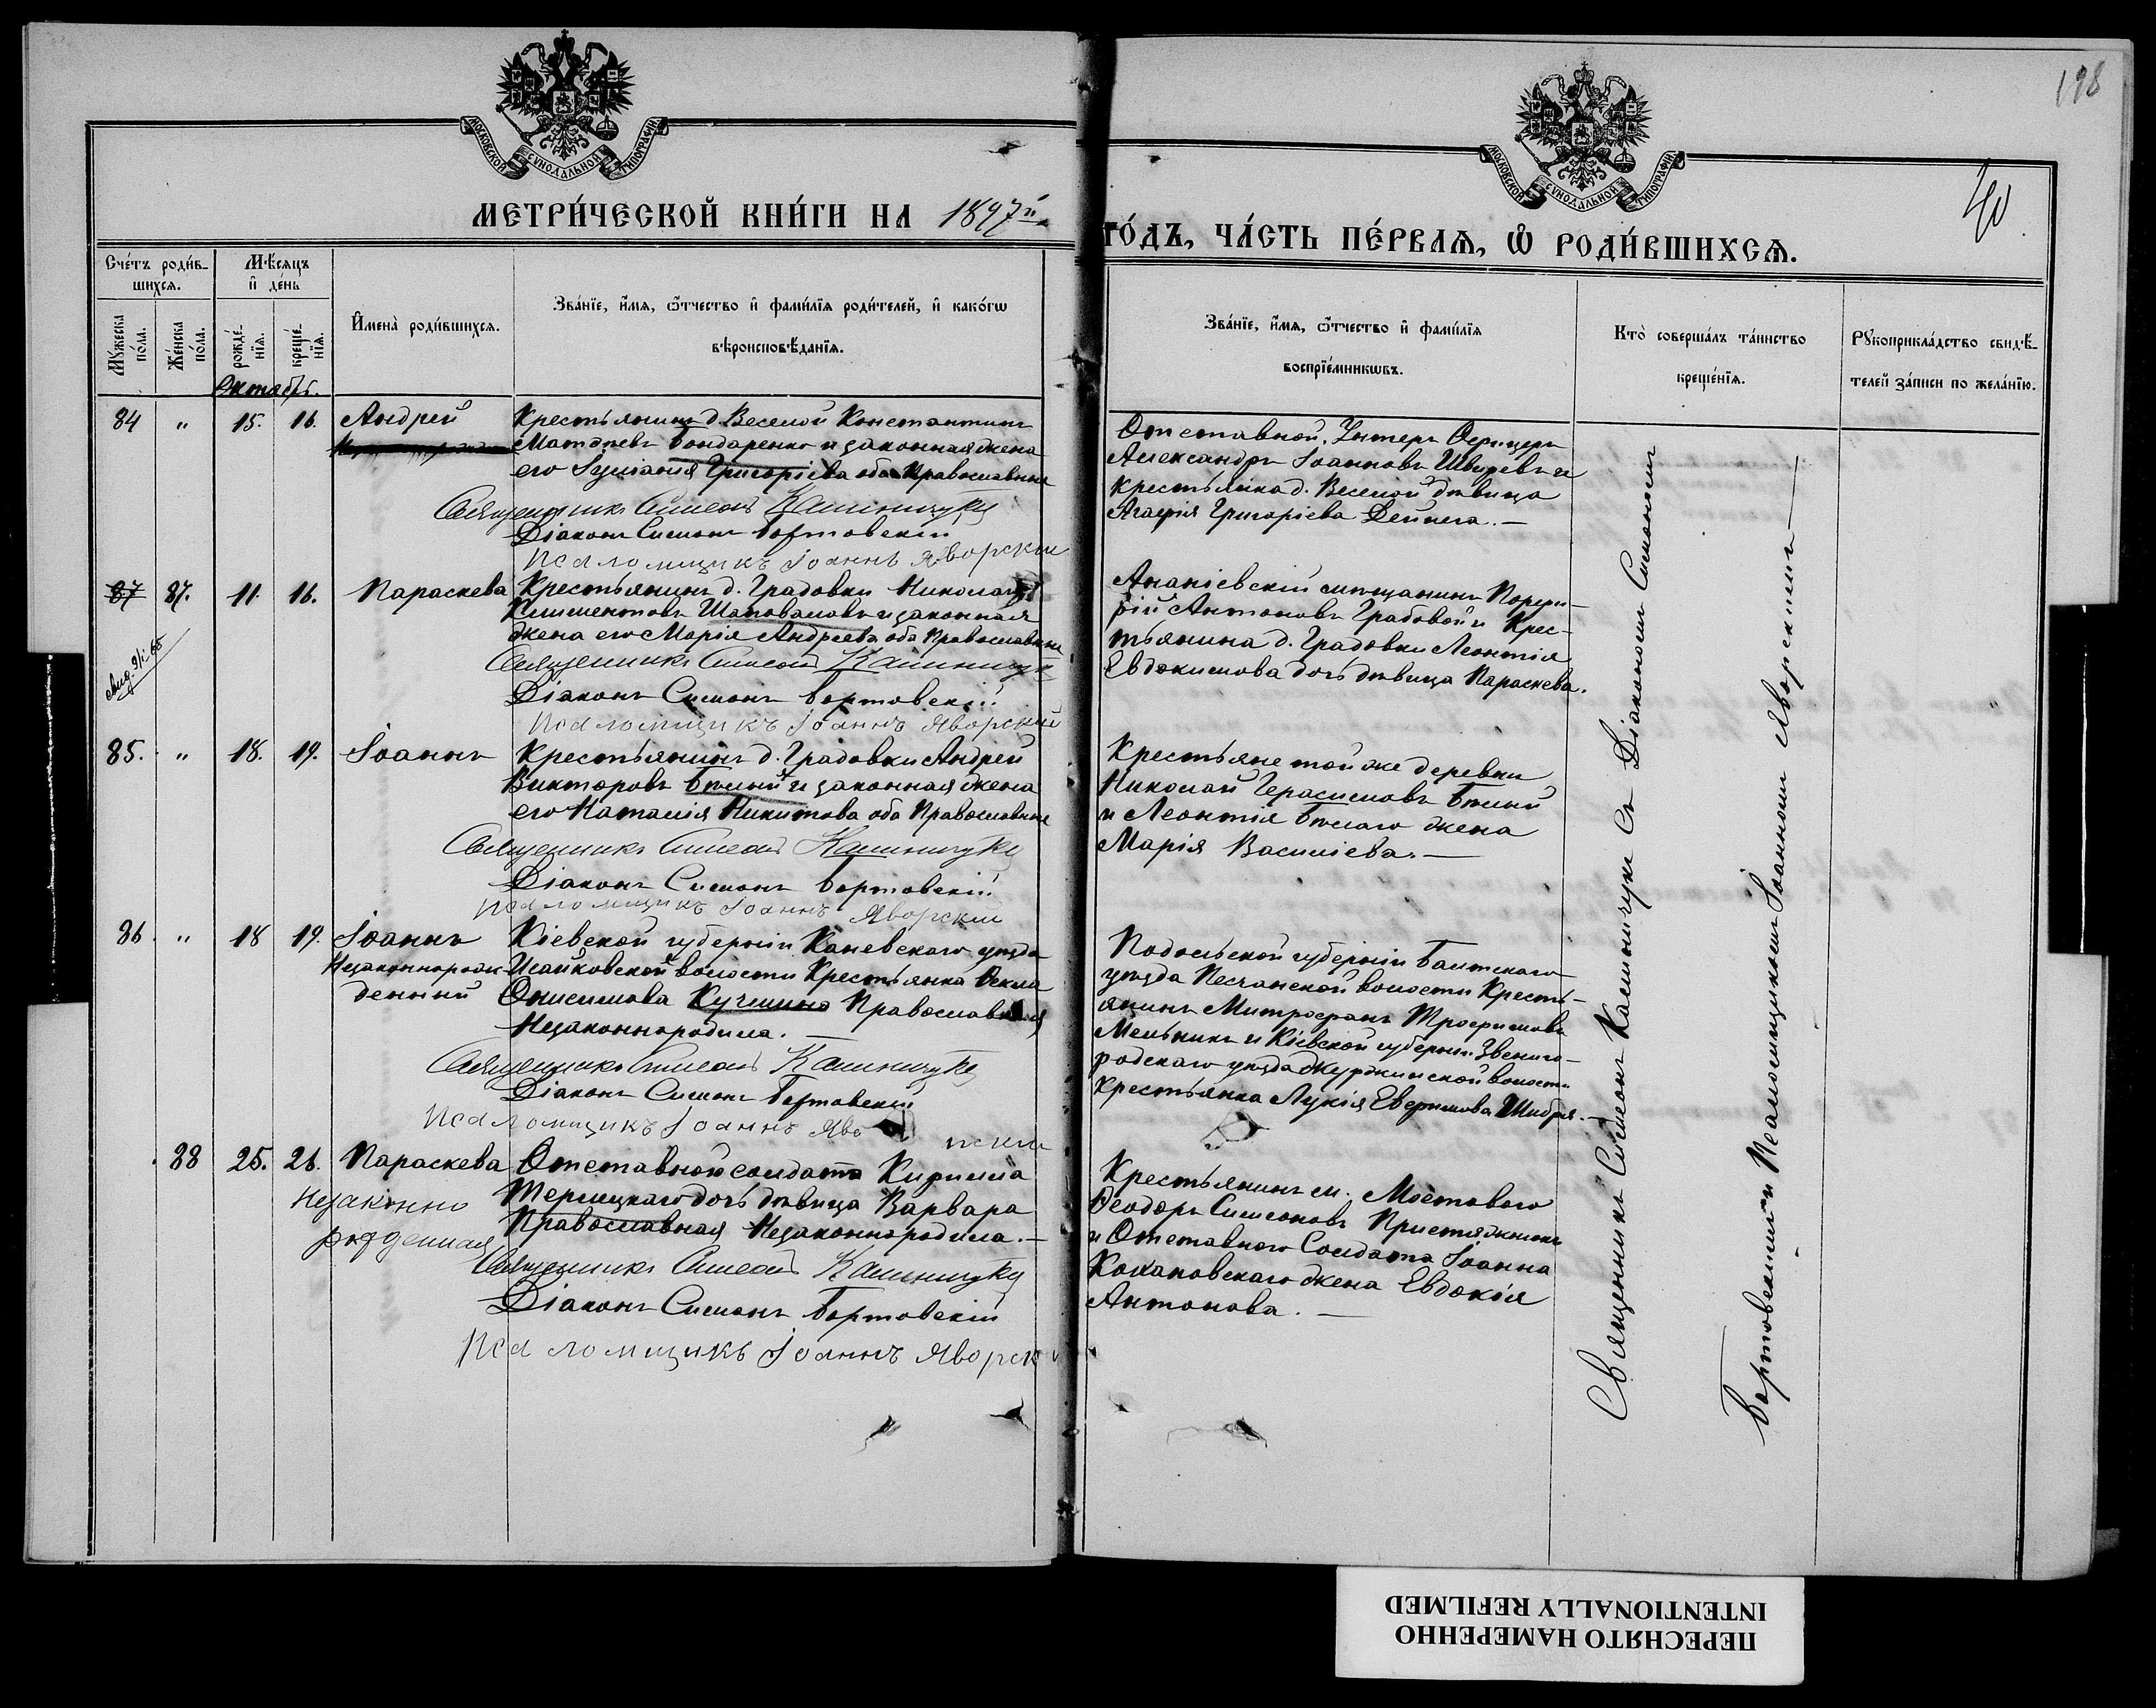 198
40
МОСКОВСКОЙ СѴНОДАЛЬНОЙ ТИПОГРАФІИ
МОСКОВСКОЙ СѴНОДАЛЬНОЙ ТИПОГРАФІИ
МЕТРИ́ЧЕСКОЙ КНИ́ГИ НА 1897й
ГО́ДЪ, ЧА́СТЬ ПЕ́РВАѦ, Ѡ҆ РОДИ́ВШИХСѦ.
Сче́тъ роди́в-
шихсѧ.
Мѣ́сѧцъ
и҆ де́нь
Мꙋ́жеска по́ла.
Же́нска по́ла.
рожде́-
нїѧ.
креще́-
нїѧ.
И҆мена̀ роди́вшихсѧ.
Зва́нїе, и҆́мѧ, ѻ҆́тчество и҆ фами́лїѧ роди́телей, и҆ како́гѡ
вѣроисповѣ́данїѧ.
Зва́нїе, и҆́мѧ, ѻ҆́тчество и҆ фами́лїѧ
воспрїе́мникѡвъ.
Кто̀ соверша́лъ та́инство
креще́нїѧ.
Рꙋкоприкла́дство свидѣ́-
телей за́писи по жела́нїю.
Октябрь.
84 " 15. 16. Андрей
Крестьянинъ д. Веселой Константинъ
Матѳѣевъ Бондаренко и законная жена
его Іуліанія Григоріева оба Православные
Священникъ Симеонъ Калинчукъ
Діаконъ Симонъ Бортовскій
Псаломщикъ Іоаннъ Яворскій
Отставной Унтеръ Офицеръ
Александръ Іоанновъ Швыревъ и
крестьянка д. Веселой дѣвица
Агафія Григоріева Дейнега.—
87 87. 11. 16. Параскева
Крестьянинъ д. Градовки Николай
Климентовъ Шаповаловъ и законная
жена его Марія Андреева оба Православные
Священникъ Симеонъ Калинчукъ
Діаконъ Симонъ Бортовскій
Псаломщикъ Іоаннъ Яворскій
Ананіевскій мѣщанинъ Порфи-
рій Антоновъ Грабовой и Крес-
тьянина д. Градовки Леонтія
Евдокимова дочь дѣвица Параскева.
85. " 18. 19. Іоаннъ
Крестьянинъ д. Градовки Андрей
Викторовъ Бѣлый и законная жена
его Наталія Никитова оба Православные
Священникъ Симеонъ Калинчукъ
Діаконъ Симонъ Бортовскій
Псаломщикъ Іоаннъ Яворскій
Крестьяне той же деревни
Николай Герасимовъ Бѣлый
и Леонтія Бѣлаго жена
Марія Василіева.—
86. " 18 19. Іоаннъ
Незаконнорож-
денный
Кіевской губерніи Каневскаго уѣзда
Исайковской волости Крестьянка Ѳекла
Онисимова Кучмина Православная
Незаконнородила.—
Священникъ Симеонъ Калинчукъ
Діаконъ Симонъ Бортовскій
Псаломщикъ Іоаннъ Яво рскій
Подольской губерніи Балтскаго
уѣзда Песчанской волости Кресть-
янинъ Митрофанъ Трофимовъ
Мельникъ и Кіевской губерніи Звениго-
родскаго уѣзда Журжинской волости
Крестьянка Лукія Евфимова Шибря.—
88 25. 26. Параскева
Незаконно
рожденная
Отставного солдата Кирилла
Терлицкаго дочь дѣвица Варвара
Православная Незаконнородила.—
Священникъ Симеонъ Калинчукъ
Діаконъ Симонъ Бортовскій
Псаломщикъ Іоаннъ Яворскій
Крестьянинъ м. Мостового
Ѳеодоръ Симеоновъ Пристяжнюкъ
и Отставного Солдата Іоанна
Кохановскаго жена Евдокія
Антонова.—
Священникъ Симеонъ Калинчукъ съ Діакономъ Симономъ
Бортовскимъ и Псаломщикомъ Іоанномъ Яворскимъ—
ПЕРЕСНЯТО НАМЕРЕННО
INTENTIONALLY REFILMED